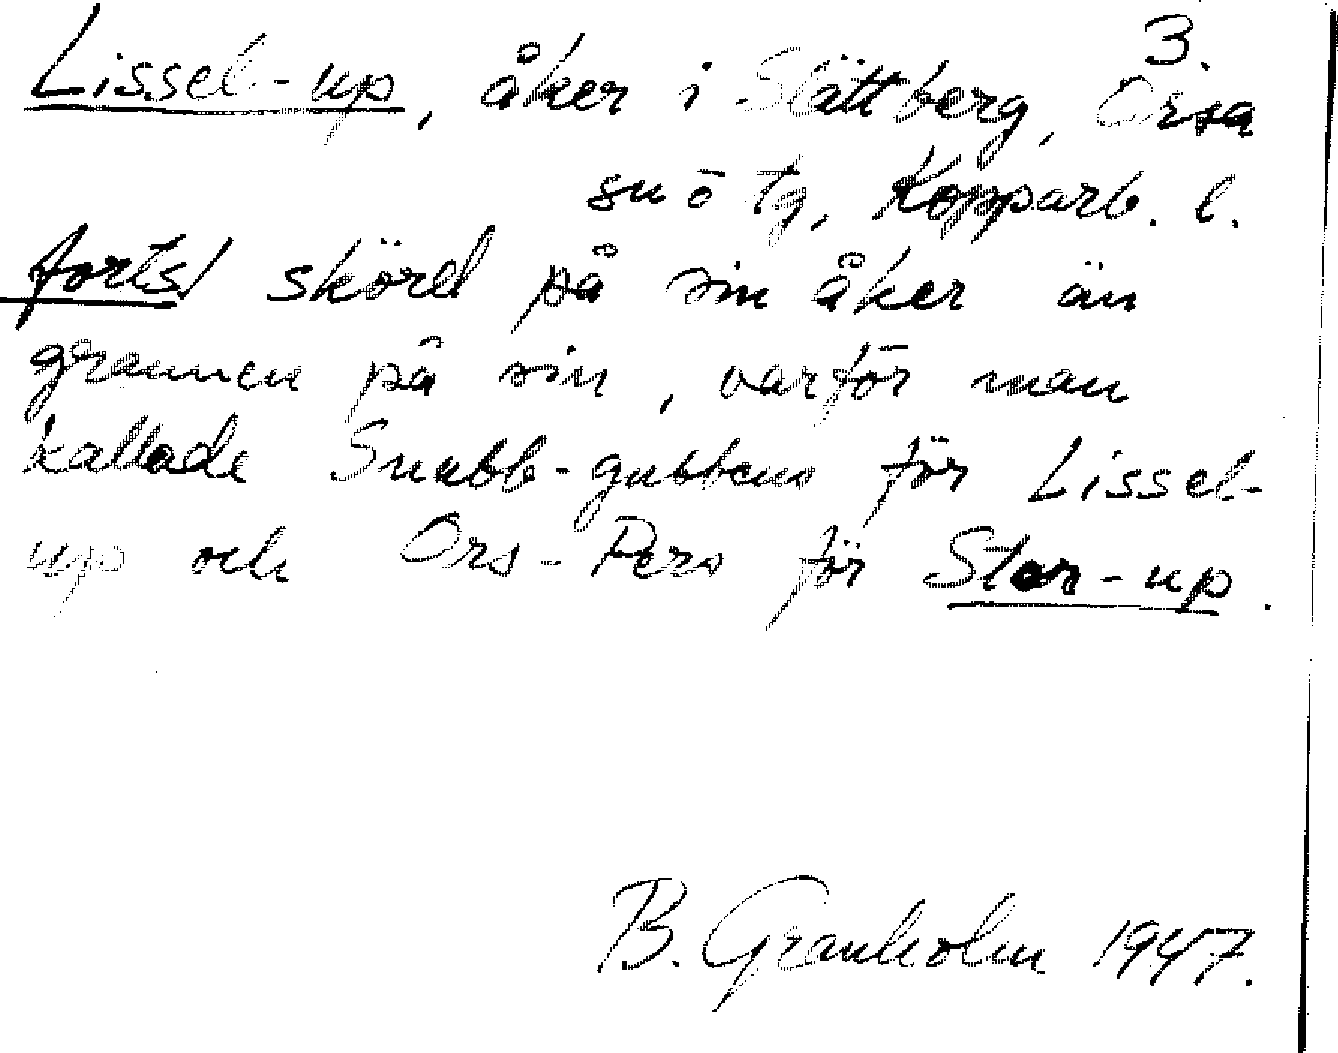 3.
Lissel-up, åker i Slättberg, Orsa
sn ö tg, Kopparb. l.
forts/ skörd på sin åker än
grannen på sin, varför man
kallade Snubb-gubbens för Lissel-
up och Ors-Pers för Stor-up.
B. Granholm 1947.